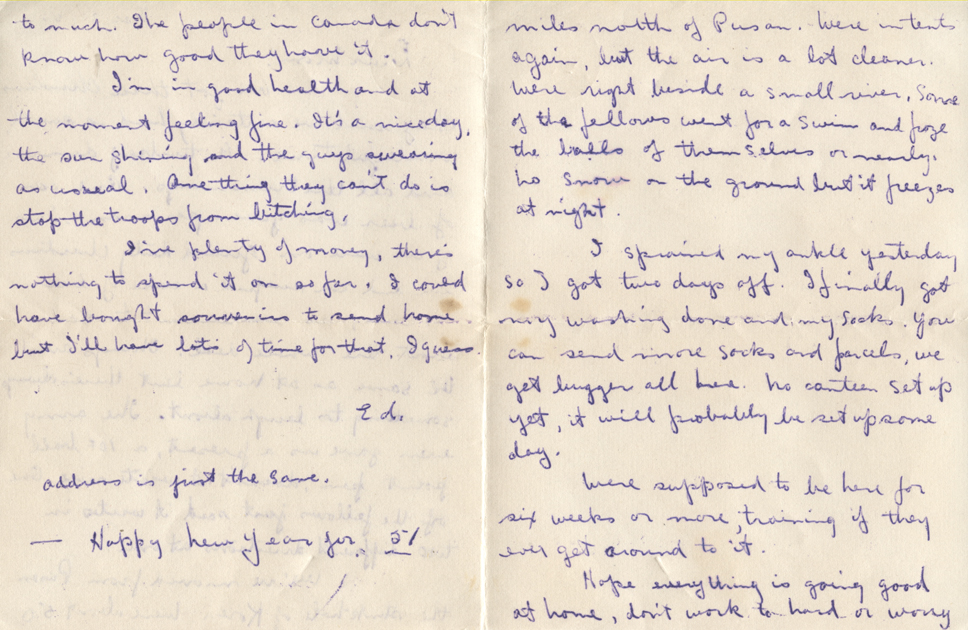 miles north of Pusan. Were in tents
again, but the air is a lot cleaner.
Were right beside a small river, Some
of the fellows went for a swim and froze
the balls of themselves or nearly.
No snow on the ground but it freezes
at night.
I sprained my ankle yesterday
so I got two days off. I finally got
my washing done and my socks. You
can send more socks and parcels, we
get bugger all here. No canteen set up
yet, it will probably be set up some
day.
Were supposed to be here for
six weeks or more, training if they
ever get around to it.
Hope everything is going good
at home, don't work to hard or worry
to much. The people in Canada don't
know how good they have it.
I'm in good health and at
the moment feeling fine. It's a nice day,
the sun shining and the guys swearing
as usueal. One thing they can't do is
stop the troops from bitching.
I've plenty of money, there's
nothing to spend it on so far. I could
have bought souvenirs to send home
but I'll have lots of time for that, I guess.
Ed.
address is just the same.
— Happy New Year for 51